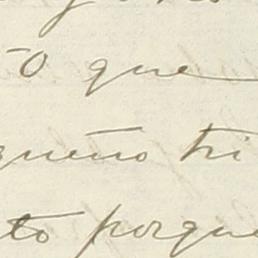 o que
queño tri
to porque